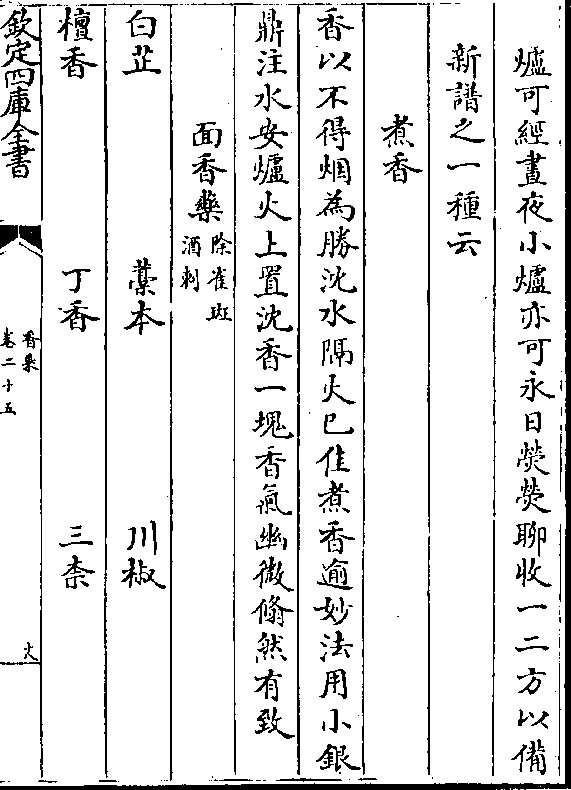 爐可經晝夜小爐亦可永日熒熒聊收一二方以備
新譜之一種云
煮香
香以不得烟為勝沈水隔火已佳煮香逾妙法用小銀
鼎注水安爐火上置沈香一塊香氣幽微翛然有致
面香藥除雀斑酒刺
白芷 藁本 川椒
檀香 丁香 三柰
欽定四庫全書 香乘卷二十五